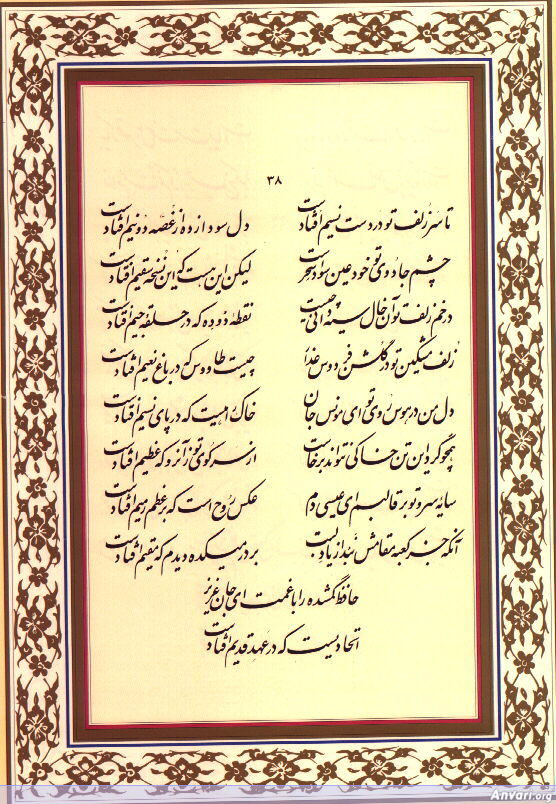 ۳۸
تا سر زلف تو در دست نسیم افتادست دل سودازده از غصه دو نیم افتادست
چشم جادوی تو خود عین سواد سحر است لیکن این هست که این نسخه سقیم افتادست
در خم زلف تو آن خال سیه دانی چیست نقطهٔ دوده که در حلقهٔ جیم افتادست
زلف مشکین تو در گلشن فردوس عذار چیست طاووس که در باغ نعیم افتادست
دل من در هوس روی تو ای مونس جان خاک راهیست که در پای نسیم افتادست
همچو گرد این تن خاکی نتواند برخاست از سر کوی تو زان رو که عظیم افتادست
سایهٔ سرو تو بر قالبم ای عیسی دم عکس روح است که بر عظم رمیم افتادست
آنکه جز کعبه مقامش نبد از یاد لبت بر در میکده دیدم که مقیم افتادست
حافظ گمشده را با غمت ای جان عزیز
اتحادیست که در عهد قدیم افتادست
Anvari.org